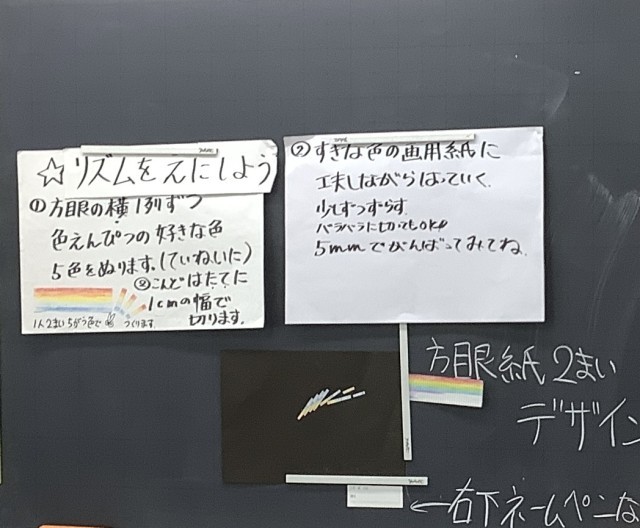 ☆リズムをえにしよう
①方眼の横1列ずつ
色えんぴつの好きな色
5色をぬります。(ていねいに)
②こんどはたてに
1cmの幅で
切ります。
1人2まいちがう色で つくります
⑦すきな色の画用紙に
工夫しながらはっていく。
少しずつずらす
バラバラに切ってもOK!
5mmでがんばってみてね。
方眼紙2まい
デザイン
←右下ネームペンな